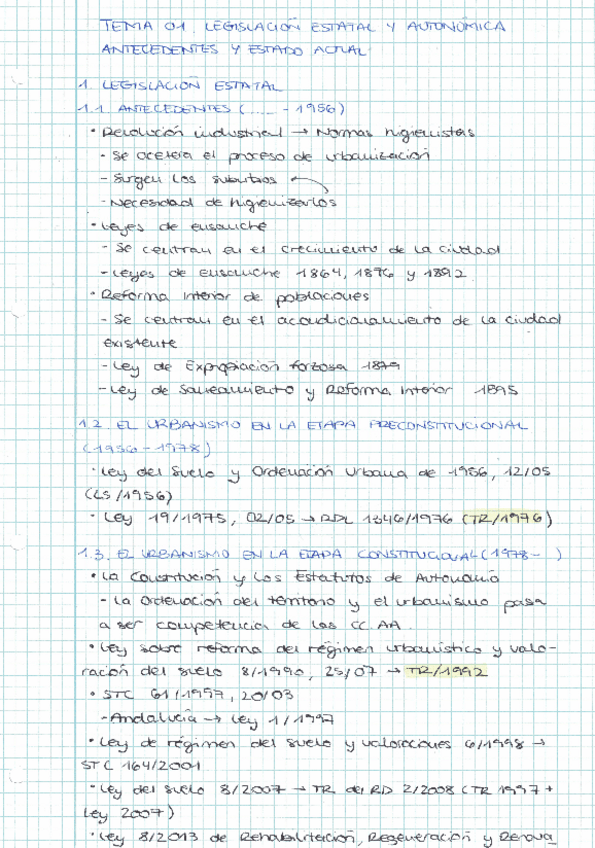 TEMA 01. LEGISLACIÓN ESTATAL Y AUTONÓMICA
ANTECEDENTES Y ESTADO ACTUAL.
1. LEGISLACIÓN ESTATAL
1.1. ANTECEDENTES (..... - 1956)
• Revolución industrial → Normas higienistas
- Se acelera el proceso de urbanización
- Surgen los suburbios
- Necesidad de higienizarlos
• Leyes de ensanche
- Se centran en el crecimiento de la ciudad
- Leyes de ensanche 1864, 1876 y 1892
• Reforma interior de poblaciones
- Se centran en el acondicionamiento de la ciudad
existente
- Ley de Expropiación forzosa 1879
- Ley de Saneamiento y Reforma Interior 1895
1.2. EL URBANISMO EN LA ETAPA PRECONSTITUCIONAL
(1956 - 1978)
• Ley del Suelo y Ordenación Urbana de 1956, 12/05
(LS/1956)
• Ley 19/1975, 02/05 → RDL 1346/1976 (TR/1976)
1.3. EL URBANISMO EN LA ETAPA CONSTITUCIONAL (1978- )
• La Constitución y los Estatutos de Autonomía
- La ordenación del territorio y el urbanismo pasa
a ser competencia de las CC.AA.
• Ley sobre reforma del régimen urbanístico y valo-
ración del suelo 8/1990, 25/07 → TR/1992
• STC 61/1997, 20/03
- Andalucía → Ley 1/1997
• Ley de régimen del suelo y valoraciones 6/1998 →
STC 164/2001
• Ley del suelo 8/2007 → TR del RD 2/2008 (TR 1997 +
Ley 2007)
• Ley 8/2013 de Rehabilitación, Regeneración y Renova